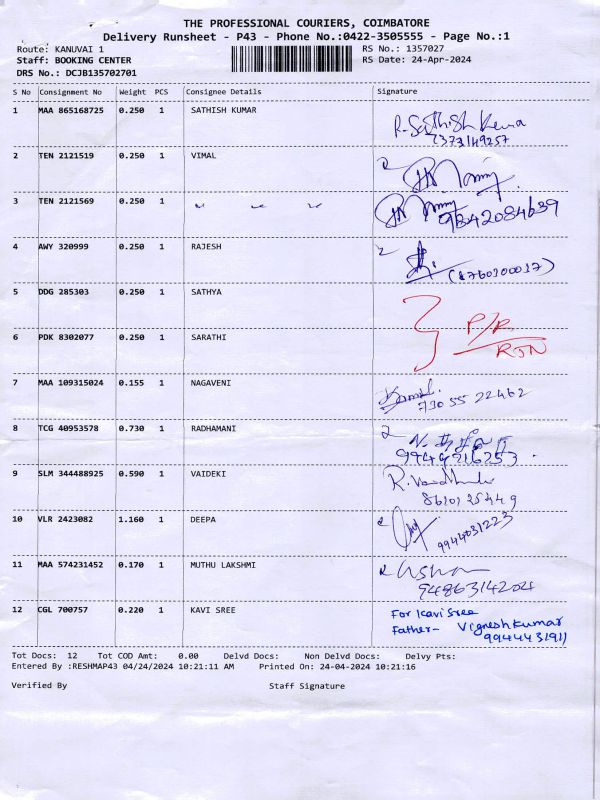 THE PROFESSIONAL COURIERS, COIMBATORE
Delivery Runsheet - P43 - Phone No.:0422-3505555 - Page No.:1
Route: KANUVAI 1 RS No.: 1357027
Staff: BOOKING CENTER RS Date: 24-Apr-2024
DRS No.: DCJB135702701
S No Consignment No Weight PCS Consignee Details Signature
1 MAA 865168725 0.250 1 SATHISH KUMAR
R. Sathish Kumar
7373149257
2 TEN 2121519 0.250 1 VIMAL
3 TEN 2121569 0.250 1 " " "
9842084639
4 AWY 320999 0.250 1 RAJESH
(8760300017)
5 DDG 285303 0.250 1 SATHYA
P/R
RTN
6 PDK 8302077 0.250 1 SARATHI
7 MAA 109315024 0.155 1 NAGAVENI
730 55 22462
8 TCG 40953578 0.730 1 RADHAMANI
9944916253
9 SLM 344488925 0.590 1 VAIDEKI
8610125449
10 VLR 2423082 1.160 1 DEEPA
9944031223
11 MAA 574231452 0.170 1 MUTHU LAKSHMI
9486314202
12 CGL 700757 0.220 1 KAVI SREE
For Kavi Sree
Father- Vignesh Kumar
9944431911
Tot Docs: 12 Tot COD Amt: 0.00 Delvd Docs: Non Delvd Docs: Delvy Pts:
Entered By :RESHMAP43 04/24/2024 10:21:11 AM Printed On: 24-04-2024 10:21:16
Verified By Staff Signature